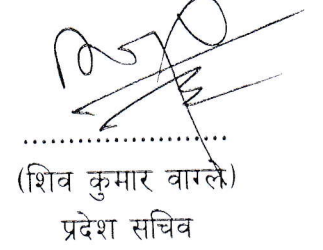 ....................................
(शिव कुमार वाग्ले)
प्रदेश सचिव